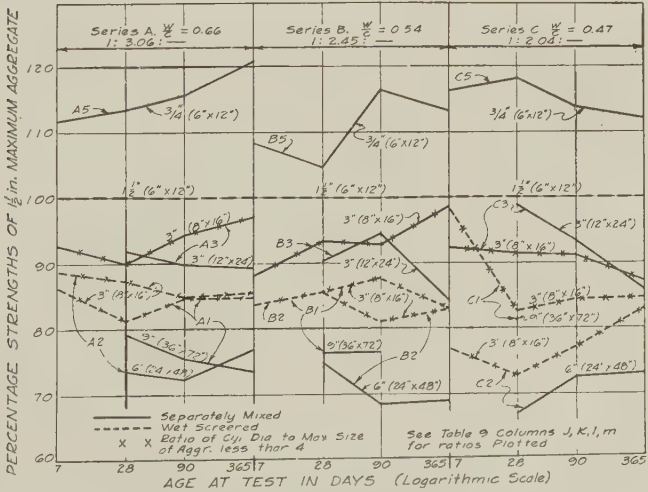 PERCENTAGE STRENGTHS OF 1½ in. MAXIMUM AGGREGATE
Series A. W/C = 0.66
1: 3.06: —
Series B. W/C = 0.54
1: 2.45: —
Series C W/C = 0.47
1: 2.04: —
120
110
100
90
80
70
60
A5
3/4" (6"x12")
B5
3/4" (6"x12")
C5
3/4" (6"x12")
1½" (6"x12")
1½" (6"x12")
1½" (6"x12")
3" (8"x16")
A3
3" (12"x24")
3" (8"x16")
A1
A2
9" (36"x72")
6" (24"x48")
3" (8"x16")
B3
3" (12"x24")
B2
B1
3" (8"x16")
9" (36"x72")
B2
6" (24"x48")
C3
3" (12"x24")
3" (8"x16")
C1
3" (8"x16")
9" (36"x72")
3" (8"x16")
C2
6" (24"x48")
Separately Mixed
Wet Screened
x x Ratio of Cyl Dia to Max Size
of Aggr. less than 4
See Table 9 Columns J, K, l, m
for ratios Plotted
7 28 90 365 7 28 90 365 7 28 90 365
AGE AT TEST IN DAYS (Logarithmic Scale)